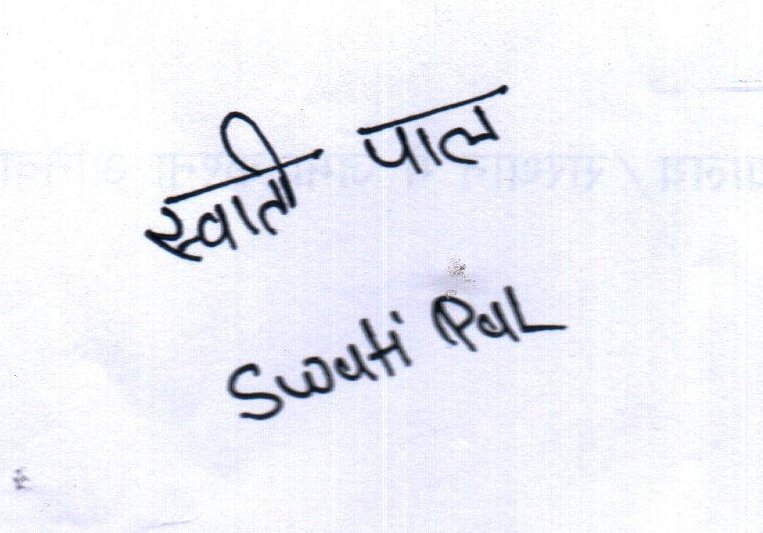 स्वाती पाल
Swati Pal